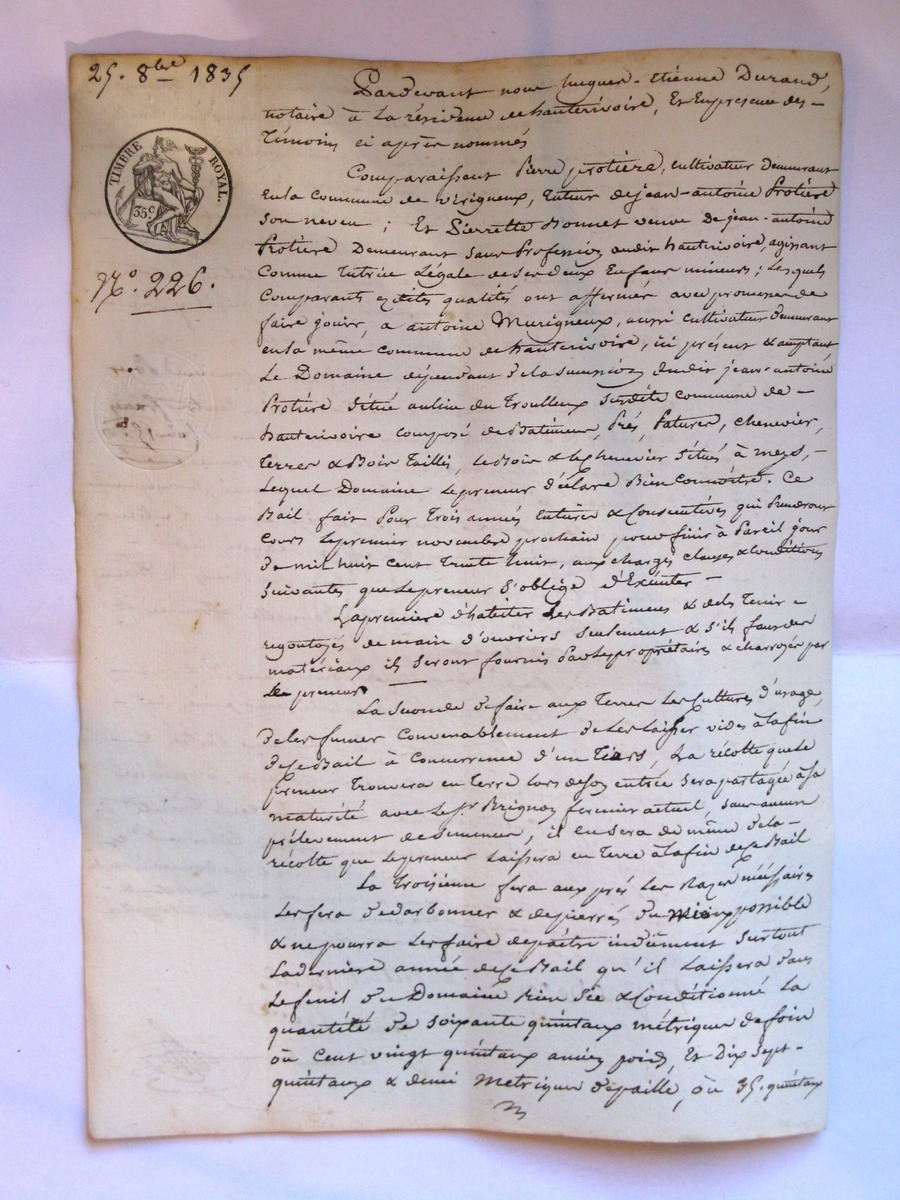 25. 8bre 1835
TIMBRE ROYAL.
35c
No. 226.
Pardevant nous hugues-Etiénne Durand,
notaire à la résidence de hauterivoire, Et Enpresence des-
Témoins ci après nommés
Comparaissent Pierre protière, cultivateur demeurant
en la commune de vérigneux, tuteur de jean-antoine Protière
son neveu ; Et Pierrette Bonnet veuve de jean-antoine
Protière demeurant sans Profession audit hauterivoire, agissant
Comme tutrice Légale de ses deux Enfans mineurs ; Lesquels
Comparants esdites qualités ont affermé avec promesse de
faire jouir, a antoine Murigneux, aussi cultivateur demeurant
en la même commune de hauterivoire, ici présent & acceptant
Le Domaine dépendant de la succession dudit jean-antoine
Protière situé au lieu du Troulleux susdite commune de -
hauterivoire composé de Batimens, Prés, Patures, chenevier,
terres & Bois Taillis, le Bois & le chenevier situés à meys, -
Lequel Domaine le preneur déclare Bien Connoitre. Ce
Bail fait Pour trois années Entières & Consecutives qui Prendront
Cours le premier novembre prochain pour finir à Pareil jour
de mil huit cent trente huit, aux charges clauses & Conditions
suivantes que le preneur s'oblige d'Exécuter -
La première d'habiter Les Batimens & de les tenir -
regoutoyés de main d'ouvriers seulement & s'il faut des
matériaux ils seront fournis Par les propriétaires & charroyés par
Le preneur. —
La seconde de faire aux Terres Les Cultures d'usage
de les fumer Convenablement de Les Laisser vides à la fin
de ce Bail à Concurrence d'un Tiers, La récolte que le
preneur Trouvera en terre lors de son entrée sera partagée à sa
maturité avec le sr. Brignon fermier actuel, sans aucun
prélevement de semences, il en sera de même de la -
récolte que le preneur Laissera en Terre à la fin de ce Bail
La Troisième fera aux prés Les Rases nécéssaires
Les fera dedarbonner & depierrés du mieux possible
& ne pourra Les faire depaître induement surtout
La dernière année de ce Bail qu'il Laissera dans
Le fenil du Domaine Bien Sée & Conditionné La
quantité de soixante quintaux métriques de foin
ou Cent vingt quintaux ancien poids, Et Dix sept-
quintaux & demi métriques de paille, ou 35. quintaux